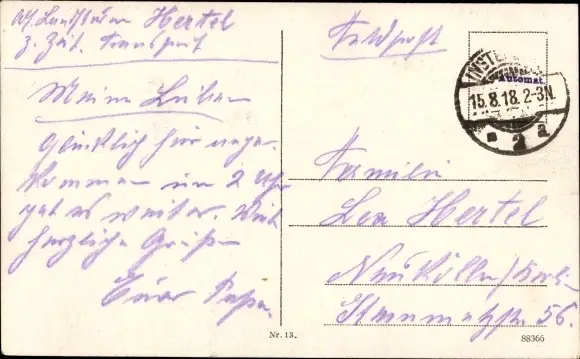 Abs. Landsturm Hertel
z. Zeit. Transport
Meine Lieben
Glücklich hier ange-
kommen um 2 Uhr
geht es weiter. Viele
herzliche Grüße
Euer Papa.
Feldpost
INSTE
Automat.
15.8.18. 2-3N.
2
Familie
Leo Hertel
Neukölln/Berlin
56.
Nr. 13.
88366